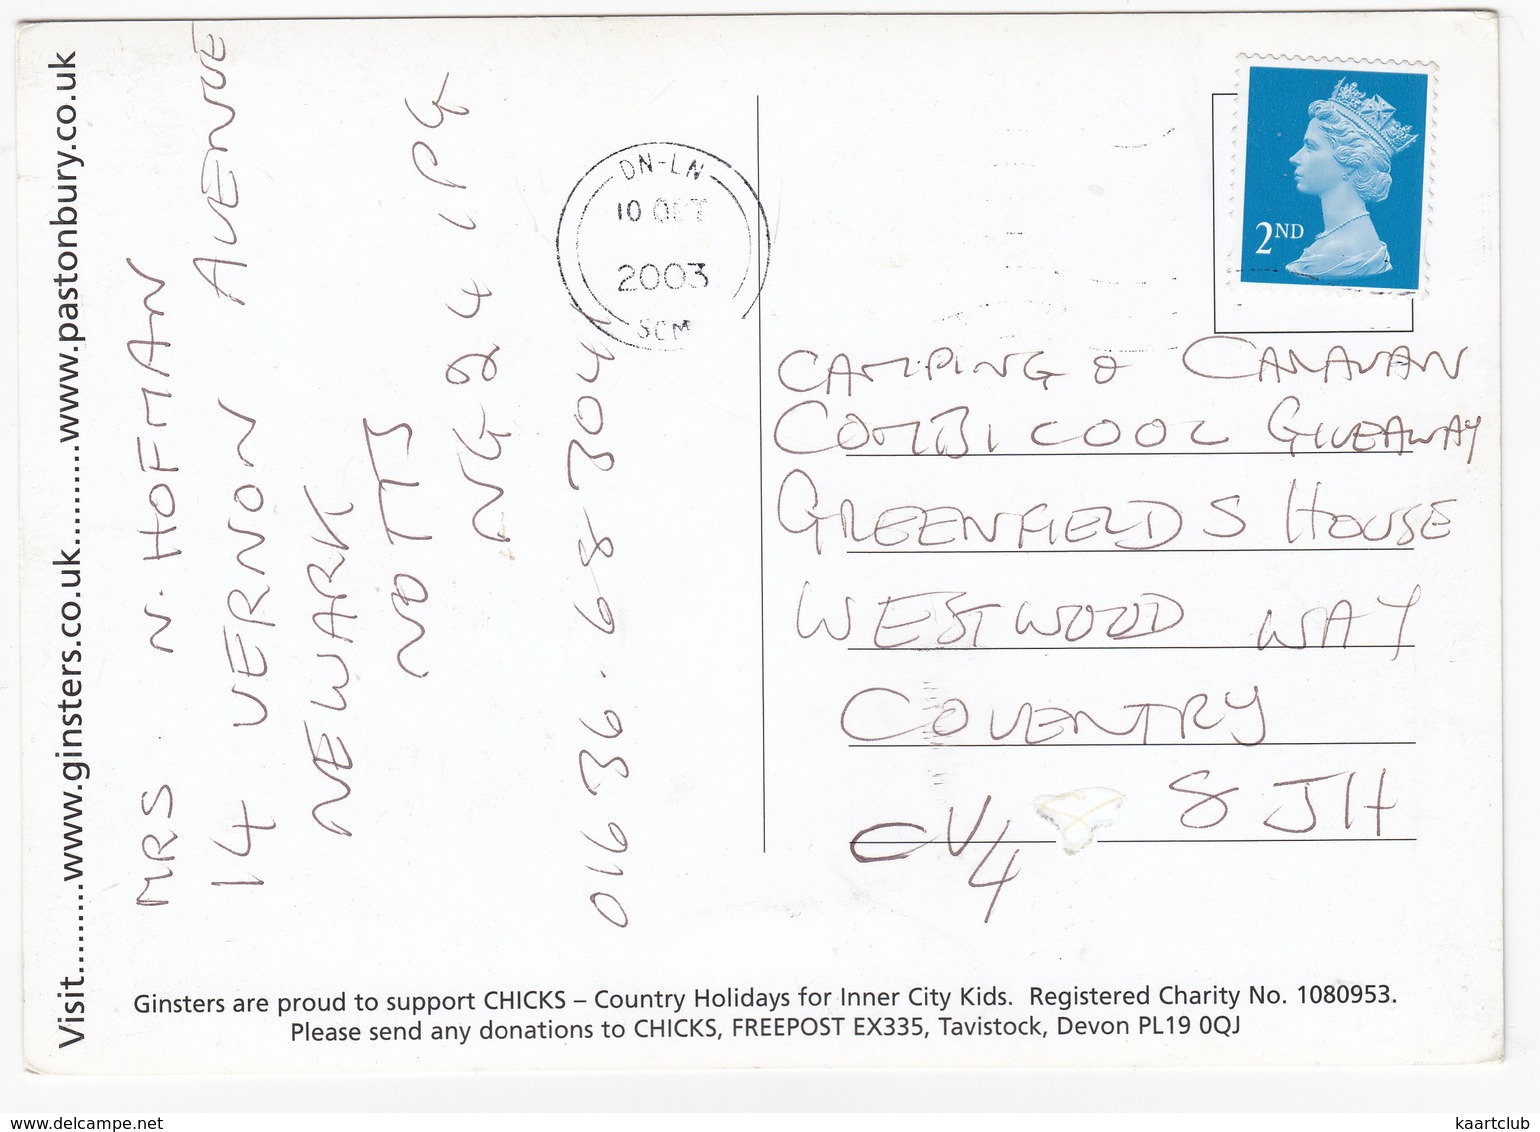 Visit.........www.ginsters.co.uk..........www.pastonbury.co.uk
MRS. N. HOFMAN
14 VERNON AVENUE
NEWARK
NOTTS
NG24 1PG
01636.68304
DN-LN
10 OCT
2003
SCM
2ND
CAMPING & CARAVAN
COMBI COOL GIVEAWAY
GREENFIELDS HOUSE
WESTWOOD WAY
COVENTRY
CV4 8JH
Ginsters are proud to support CHICKS – Country Holidays for Inner City Kids. Registered Charity No. 1080953.
Please send any donations to CHICKS, FREEPOST EX335, Tavistock, Devon PL19 0QJ
www.delcampe.net
kaartclub